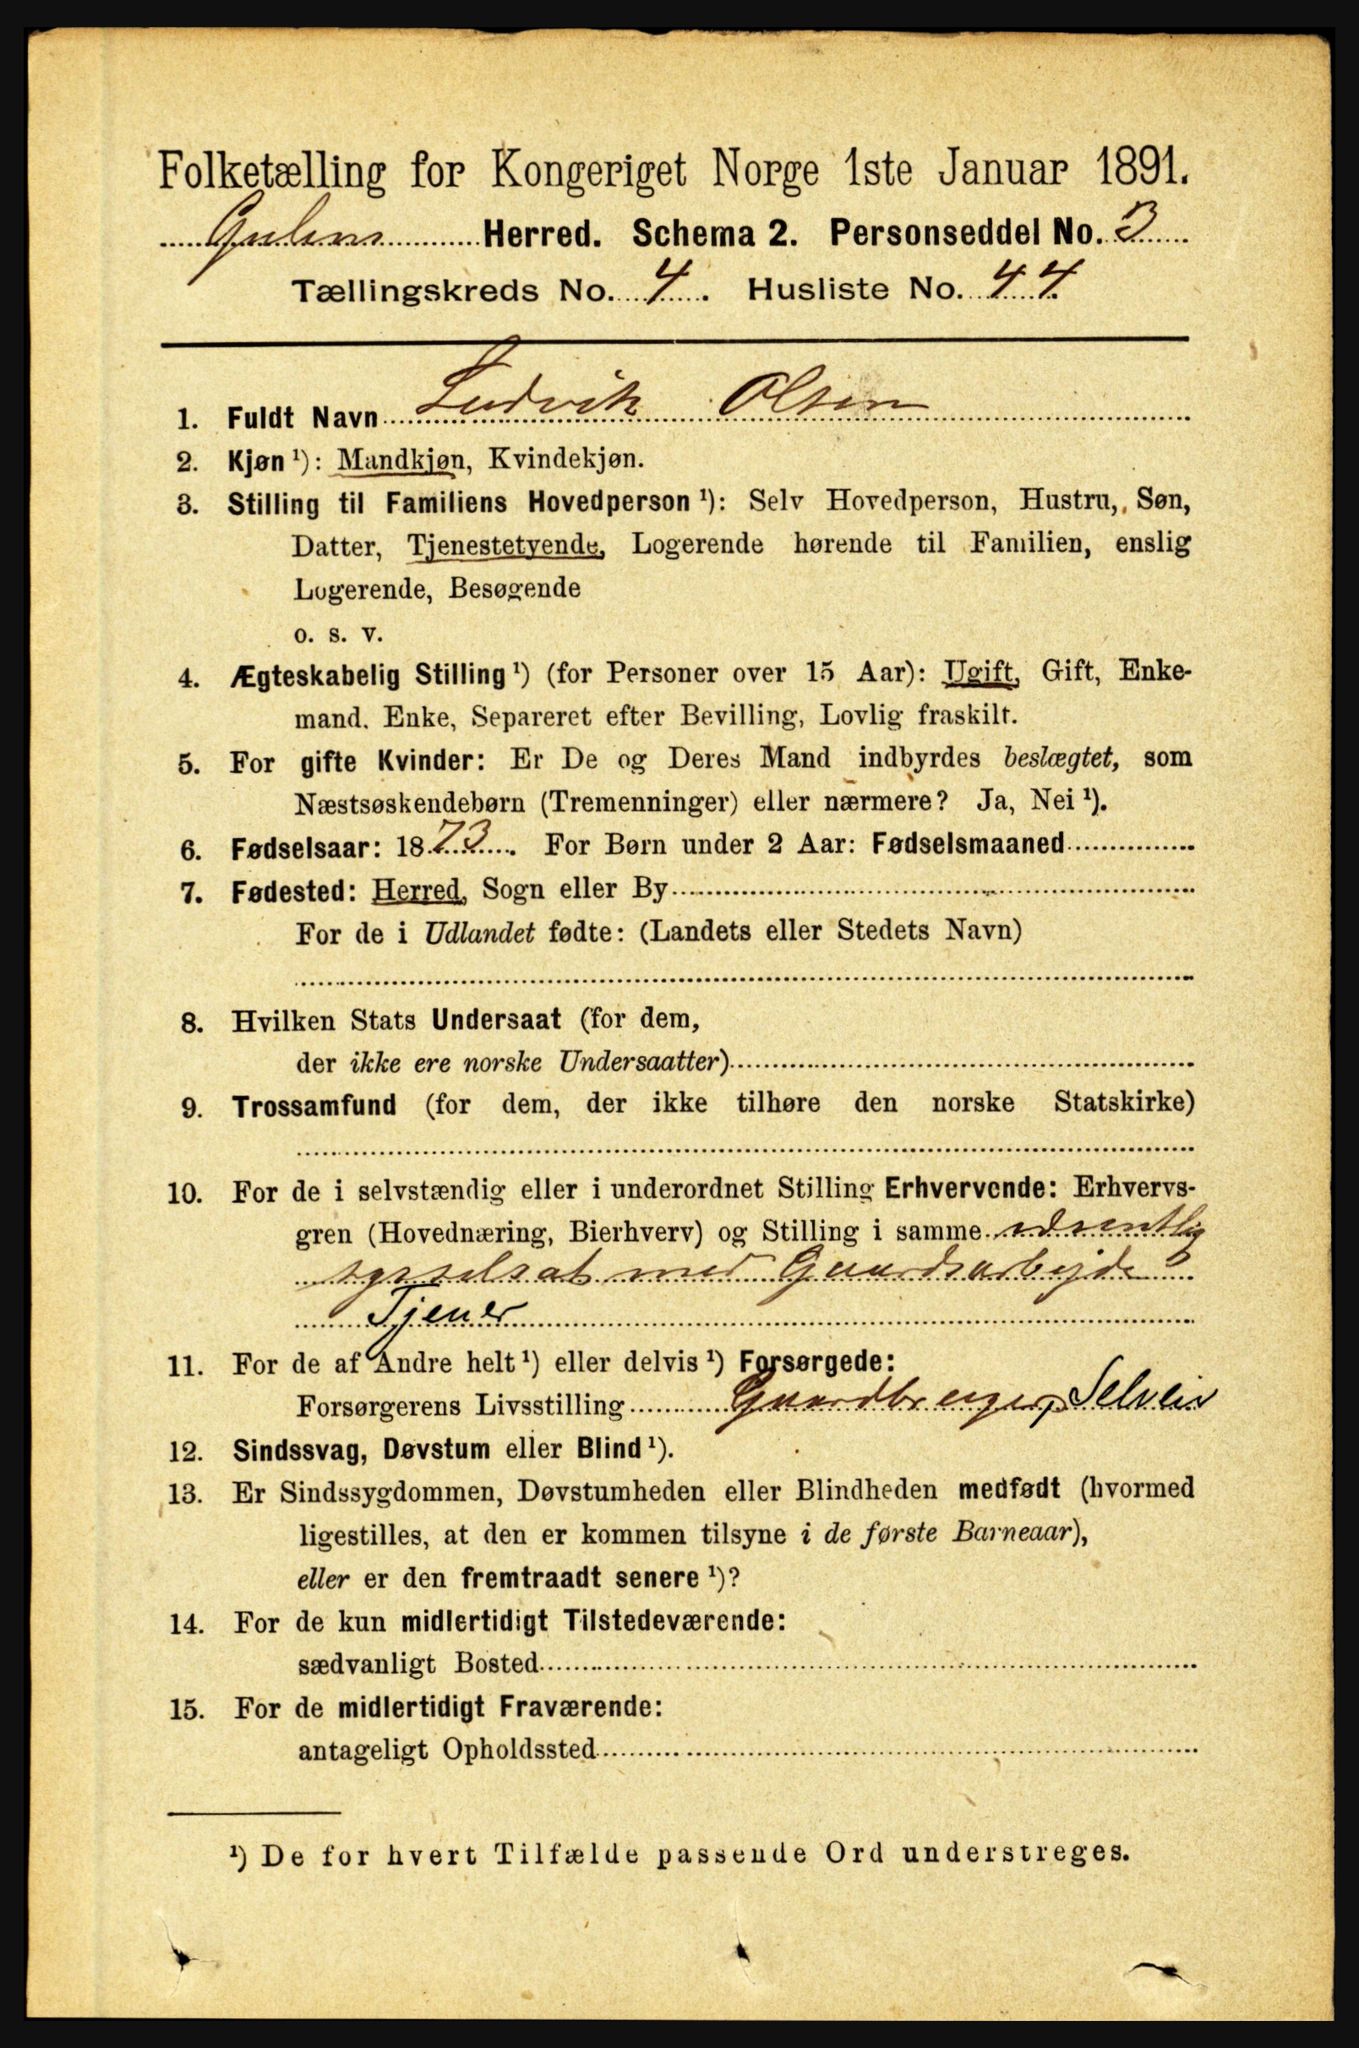 Folketælling for Kongeriget Norge 1ste Januar 1891.
Gulens Herred. Schema 2. Personseddel No. 3
Tællingskreds No. 4. Husliste No. 44.
1. Fuldt Navn Ludvik Olsen
2. Kjøn ¹): Mandkjøn, Kvindekjøn.
3. Stilling til Familiens Hovedperson ¹): Selv Hovedperson, Hustru, Søn,
Datter, Tjenestetyende, Logerende hørende til Familien, enslig
Logerende, Besøgende
o. s. v.
4. Ægteskabelig Stilling ¹) (for Personer over 15 Aar): Ugift, Gift, Enke-
mand. Enke, Separeret efter Bevilling, Lovlig fraskilt.
5. For gifte Kvinder: Er De og Deres Mand indbyrdes beslægtet, som
Næstsøskendebørn (Tremenninger) eller nærmere? Ja, Nei ¹).
6. Fødselsaar: 1873. For Børn under 2 Aar: Fødselsmaaned
7. Fødested: Herred, Sogn eller By
For de i Udlandet fødte: (Landets eller Stedets Navn)
8. Hvilken Stats Undersaat (for dem,
der ikke ere norske Undersaatter)
9. Trossamfund (for dem, der ikke tilhøre den norske Statskirke)
10. For de i selvstændig eller i underordnet Stilling Erhvervende: Erhvervs-
gren (Hovednæring, Bierhverv) og Stilling i samme væsentlig
sysselsat med Gaardsarbejde
Tjener
11. For de af Andre helt ¹) eller delvis ¹) Forsørgede:
Forsørgerens Livsstilling Gaardbruger, Selveier
12. Sindssvag, Døvstum eller Blind ¹).
13. Er Sindssygdommen, Døvstumheden eller Blindheden medfødt (hvormed
ligestilles, at den er kommen tilsyne i de første Barneaar),
eller er den fremtraadt senere ¹)?
14. For de kun midlertidigt Tilstedeværende:
sædvanligt Bosted
15. For de midlertidigt Fraværende:
antageligt Opholdssted
¹) De for hvert Tilfælde passende Ord understreges.